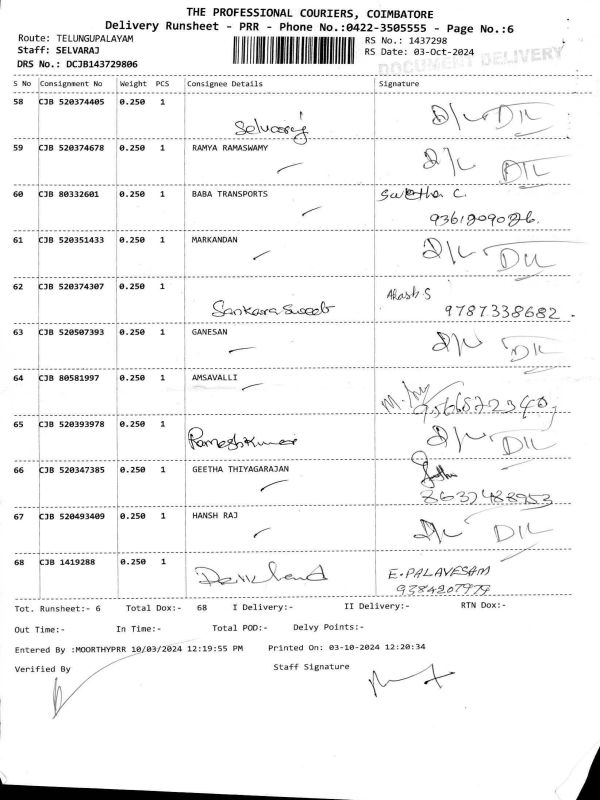 THE PROFESSIONAL COURIERS, COIMBATORE
Delivery Runsheet - PRR - Phone No.:0422-3505555 - Page No.:6
Route: TELUNGUPALAYAM RS No.: 1437298
Staff: SELVARAJ RS Date: 03-Oct-2024
DRS No.: DCJB143729806
DOCUMENT DELIVERY
S No Consignment No Weight PCS Consignee Details Signature
58 CJB 520374405 0.250 1 Selvaraj D/L DIL
59 CJB 520374678 0.250 1 RAMYA RAMASWAMY D/L DIL
60 CJB 80332601 0.250 1 BABA TRANSPORTS
61 CJB 520351433 0.250 1 MARKANDAN D/L DIL
62 CJB 520374307 0.250 1 Akash.S
9787338682
63 CJB 520507393 0.250 1 GANESAN D/L DIL
64 CJB 80581997 0.250 1 AMSAVALLI
65 CJB 520393978 0.250 1 RameshKumar D/L DIL
66 CJB 520347385 0.250 1 GEETHA THIYAGARAJAN
67 CJB 520493409 0.250 1 HANSH RAJ D/L DIL
68 CJB 1419288 0.250 1 E.PALAVESAM
Tot. Runsheet:- 6 Total Dox:- 68 I Delivery:- II Delivery:- RTN Dox:-
Out Time:- In Time:- Total POD:- Delvy Points:-
Entered By :MOORTHYPRR 10/03/2024 12:19:55 PM Printed On: 03-10-2024 12:20:34
Verified By Staff Signature